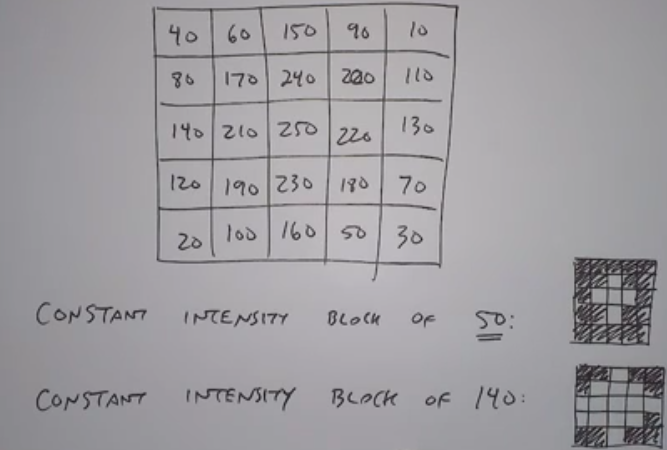 40 60 150 90 10
80 170 240 200 110
140 210 250 220 130
120 190 230 180 70
20 100 160 50 30
CONSTANT INTENSITY BLOCK OF 50:
CONSTANT INTENSITY BLOCK OF 140: